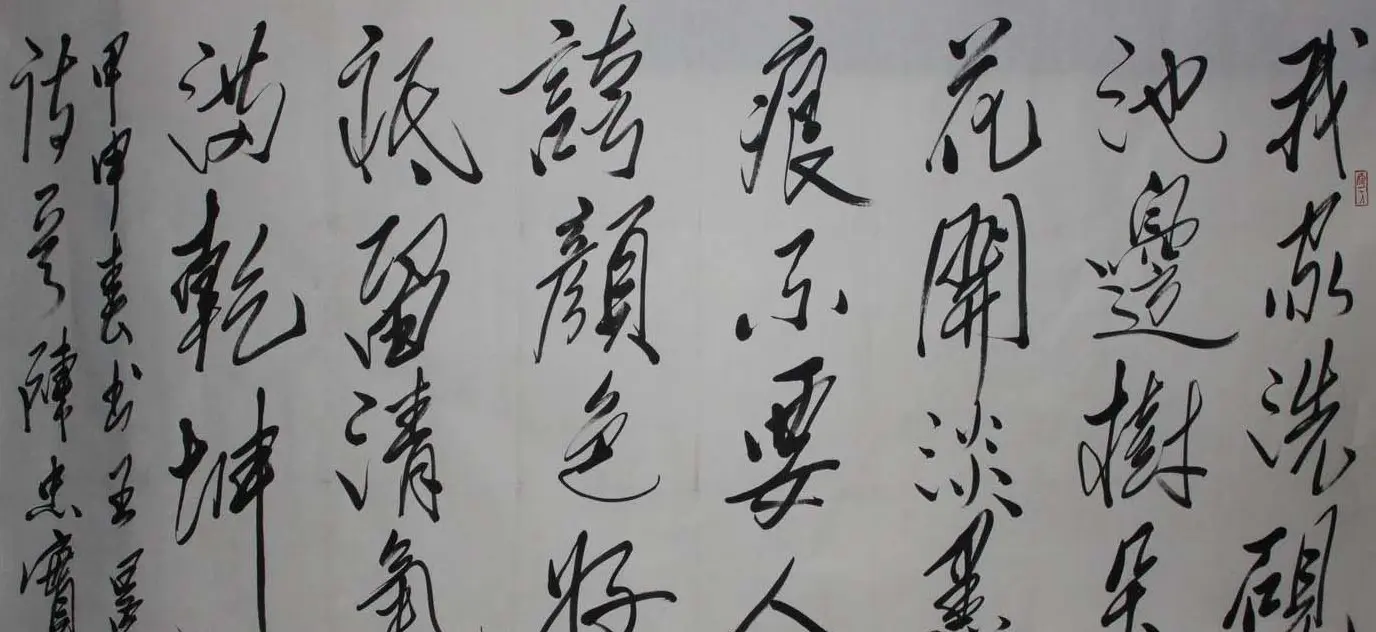 我家洗硯
池邊樹朵
花開淡墨
痕不要人
誇顏色好
祗留清氣
滿乾坤
甲申春書王冕
詩句陳忠實